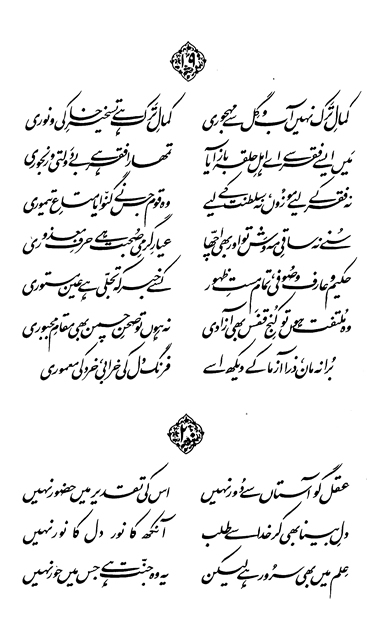 ۱۹
کمالِ تَرک نہیں آب و گل سے مہجوری کمالِ تَرک ہے تسخیرِ خاکی و نوری
مَیں ایسے فقر سے اے اہلِ حلقہ باز آیا تمھارا فقر ہے بے دولتی و رنجوری
نہ فقر کے لیے موزُوں، نہ سلطنت کے لیے وہ قوم جس نے گنوایا متاعِ تیموری
سُنے نہ ساقیِ مہ وش تو اور بھی اچھّا عیارِ گرمیِ صُحبت ہے حرفِ معذوری
حکیم و عارف و صُوفی، تمام مستِ ظہور کسے خبر کہ تجلّی ہے عین مستوری
وہ مُلتفت ہوں تو کُنجِ قفس بھی آزادی نہ ہوں تو صحنِ چمن بھی مقامِ مجبوری
بُرا نہ مان، ذرا آزما کے دیکھ اسے فرنگ دل کی خرابی، خرد کی معموری
۲۰
عقل گو آستاں سے دُور نہیں اس کی تقدیر میں حضور نہیں
دلِ بینا بھی کر خدا سے طلب آنکھ کا نور دل کا نور نہیں
عِلم میں بھی سُرور ہے لیکن یہ وہ جنّت ہے جس میں حور نہیں